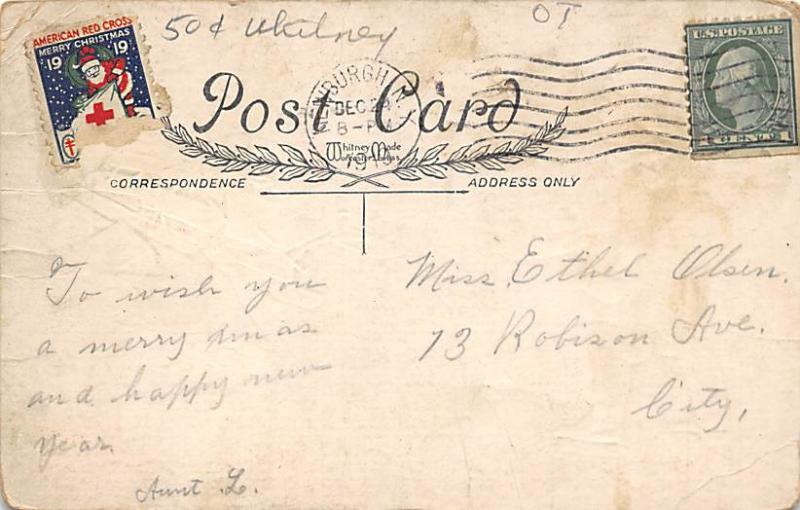 AMERICAN RED CROSS
MERRY CHRISTMAS
19 19
50¢ Whitney
OT
U.S. POSTAGE
1 CENT 1
Post Card
DEC 22
8-P
1919
Whitney Made
Worcester, Mass
CORRESPONDENCE
ADDRESS ONLY
To wish you
a merry xmas
and happy new
year.
Aunt L.
Miss Ethel Olsen.
73 Robison Ave.
City,